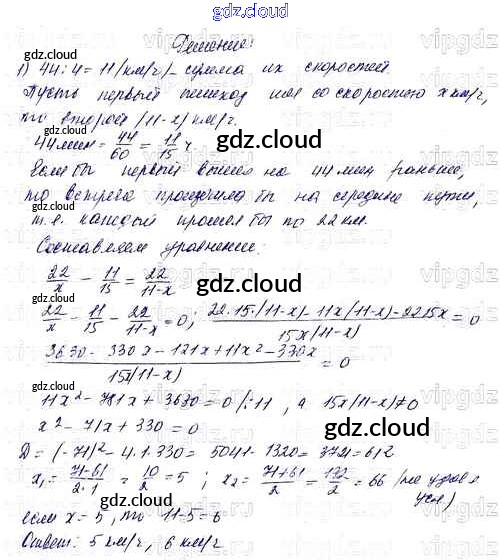 gdz.cloud
Решение:
gdz.cloud
1) 44:4=11 (км/ч) – сумма их скоростей.
Пусть первый пешеход шел со скоростью x км/ч,
то второй (11-x) км/ч.
44 мин = 44/60 = 11/15 ч
gdz.cloud
Если бы первый вышел на 44 мин раньше,
gdz.cloud
то встреча произошла бы на середине пути,
т.е. каждый прошел бы по 22 км.
Составляем уравнение:
22/x - 11/15 = 22/11-x
gdz.cloud
22/x - 11/15 - 22/11-x = 0; 22·15·(11-x)-11x(11-x)-22·15x / 15x(11-x) = 0
3630-330x-121x+11x²-330x / 15x(11-x) = 0
gdz.cloud
11x²-781x+3630=0 /:11, а 15x(11-x)≠0
x²-71x+330=0
gdz.cloud
gdz.cloud
D=(-71)²-4·1·330=5041-1320=3721=61²
x₁=71-61/2·1=10/2=5; x₂=71+61/2=132/2=66 (не удовл
усл)
gdz.cloud
если x=5, то 11-5=6
Ответ: 5 км/ч, 6 км/ч
gdz.cloud